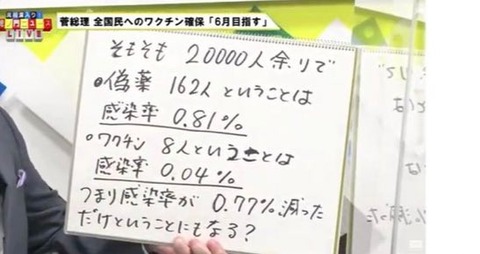 菅総理 全国民へのワクチン確保「6月目指す」
LIVE
そもそも 20000人余りで
●偽薬 162人ということは
感染率 0.81%
○ワクチン 8人ということは
感染率 0.04%
つまり感染率が 0.77% 減った
だけということにもなる?